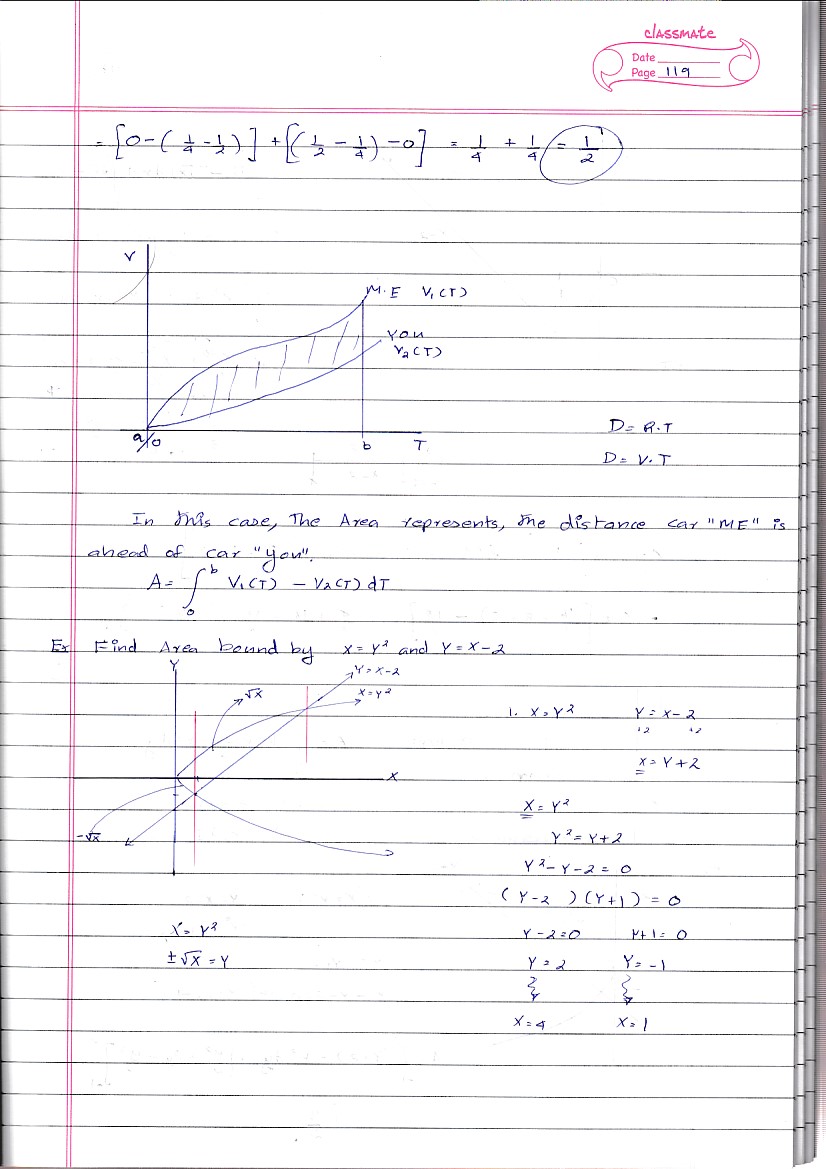 classmate
Date
Page 119
= [0 - (1/4 - 1/2)] + [(1/2 - 1/4) - 0] = 1/4 + 1/4 = 1/2
V
M.E V₁(T)
YOU
V₂(T)
a/0
b
T
D = R.T
D = V.T
In this case, The Area represents, the distance car "ME" is
ahead of car "you".
A = ∫₀ᵇ V₁(T) - V₂(T) dT
Ex Find Area bound by X = Y² and Y = X-2
Y
Y = X-2
√X
X = Y²
X
-√X
X = Y²
±√X = Y
1. X = Y² Y = X - 2
+2 +2
X = Y + 2
X = Y²
Y² = Y + 2
Y² - Y - 2 = 0
(Y - 2 ) (Y + 1) = 0
Y - 2 = 0 Y + 1 = 0
Y = 2 Y = -1
X = 4 X = 1